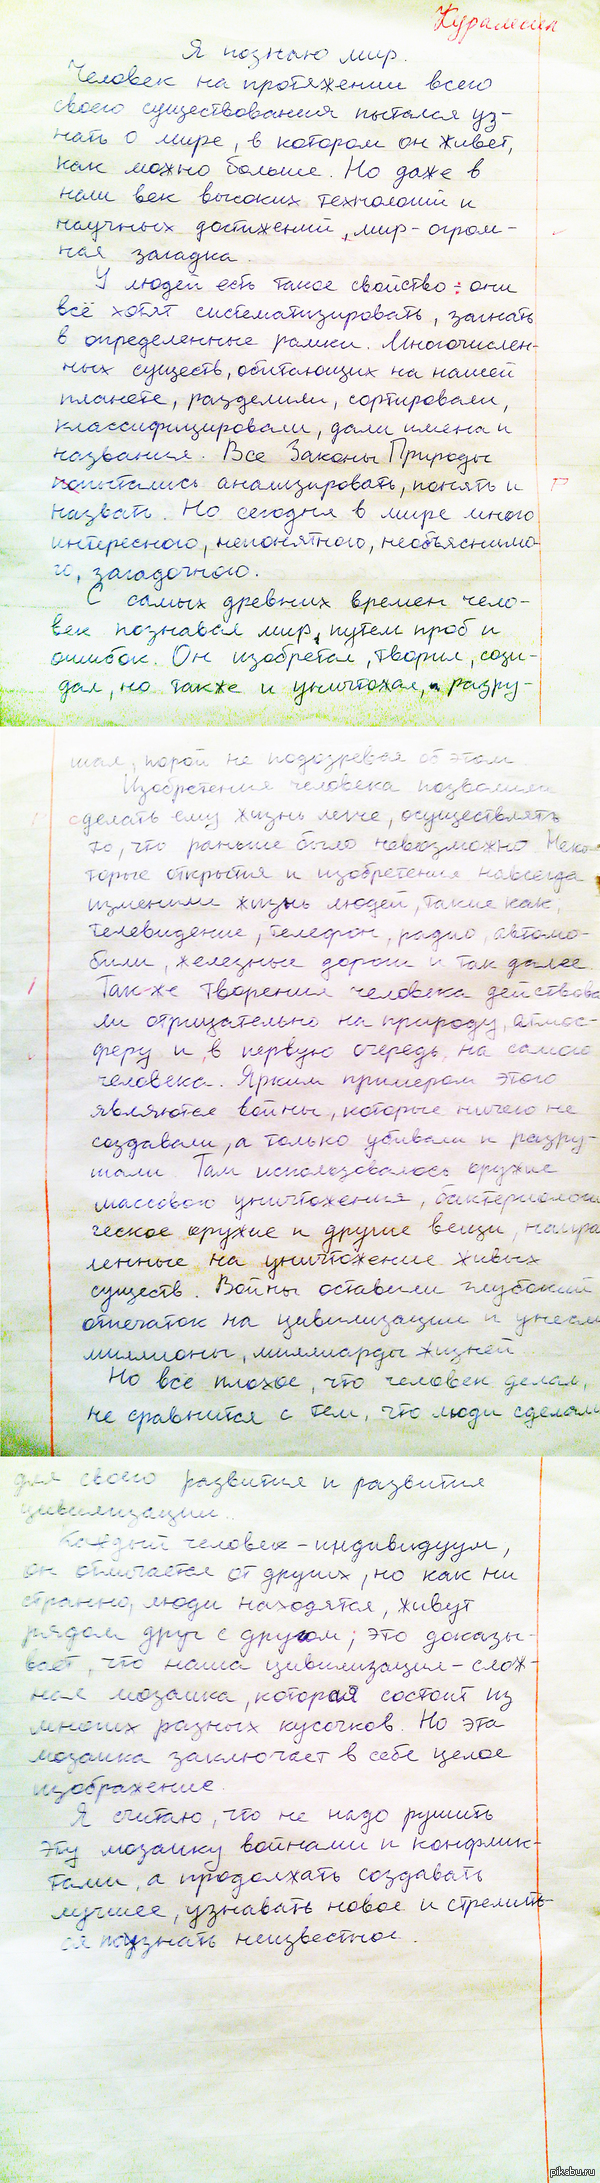 Я познаю мир.
Человек на протяжении всего
своего существования пытался уз-
нать о мире, в котором он живет,
как можно больше. Но даже в
наш век высоких технологий и
научных достижений, мир - огром-
ная загадка.
У людей есть такое свойство: они
всё хотят систематизировать, загнать
в определенные рамки. Многочислен-
ных существ, обитающих на нашей
планете, разделили, сортировали,
классифицировали, дали имена и
названия. Все Законы Природы
попытались анализировать, понять и
назвать. Но сегодня в мире много
интересного, непонятного, необъяснимо-
го, загадочного.
С самых древних времен чело-
век познавал мир, путем проб и
ошибок. Он изобретал, творил, сози-
дал, но также и уничтожал, разру-
шал, порой не подозревая об этом.
Изобретения человека позволили
сделать ему жизнь легче, осуществлять
то, что раньше было невозможно. Неко-
торые открытия и изобретения навсегда
изменили жизнь людей, такие как,
телевидение, телефон, радио, автомо-
били, железные дороги и так далее.
Так же творения человека действова
ли отрицательно на природу, атмос-
феру и, в первую очередь, на самого
человека. Ярким примером этого
являются войны, которые ничего не
создавали, а только убивали и разру-
шали. Там использовалось оружие
массового уничтожения, бактериологи
ческое оружие и другие вещи, напра
ленные на уничтожение живых
существ. Войны оставили глубокий
отпечаток на цивилизации и унесли
миллионы, миллиарды жизней.
Но всё плохое, что человек делал,
не сравнится с тем, что люди сделали
для своего развития и развития
цивилизации.
Каждый человек - индивидуум,
он отличается от других, но как ни
странно, люди находятся, живут
рядом друг с другом; это доказы-
вает, что наша цивилизация - слож-
ная мозаика, которая состоит из
многих разных кусочков. Но эта
мозаика заключает в себе целое
изображение.
Я считаю, что не надо рушить
эту мозаику войнами и конфлик-
тами, а продолжать создавать
лучшее, узнавать новое и стремить-
ся познать неизвестное.
pikabu.ru